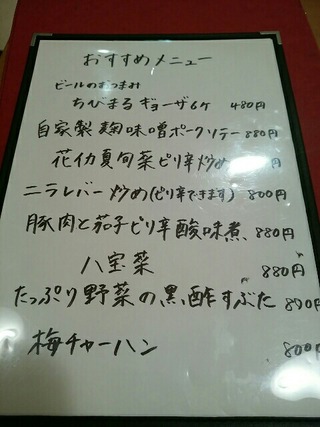 おすすめメニュー
ビールのおつまみ
ちびまるギョーザ6ヶ 480円
自家製麹味噌ポークソテー 880円
花イカ夏旬菜ピリ辛炒め 円
ニラレバー炒め(ピリ辛できます) 800円
豚肉と茄子ピリ辛酸味煮 880円
八宝菜 880円
たっぷり野菜の黒酢すぶた 890円
梅チャーハン 800円